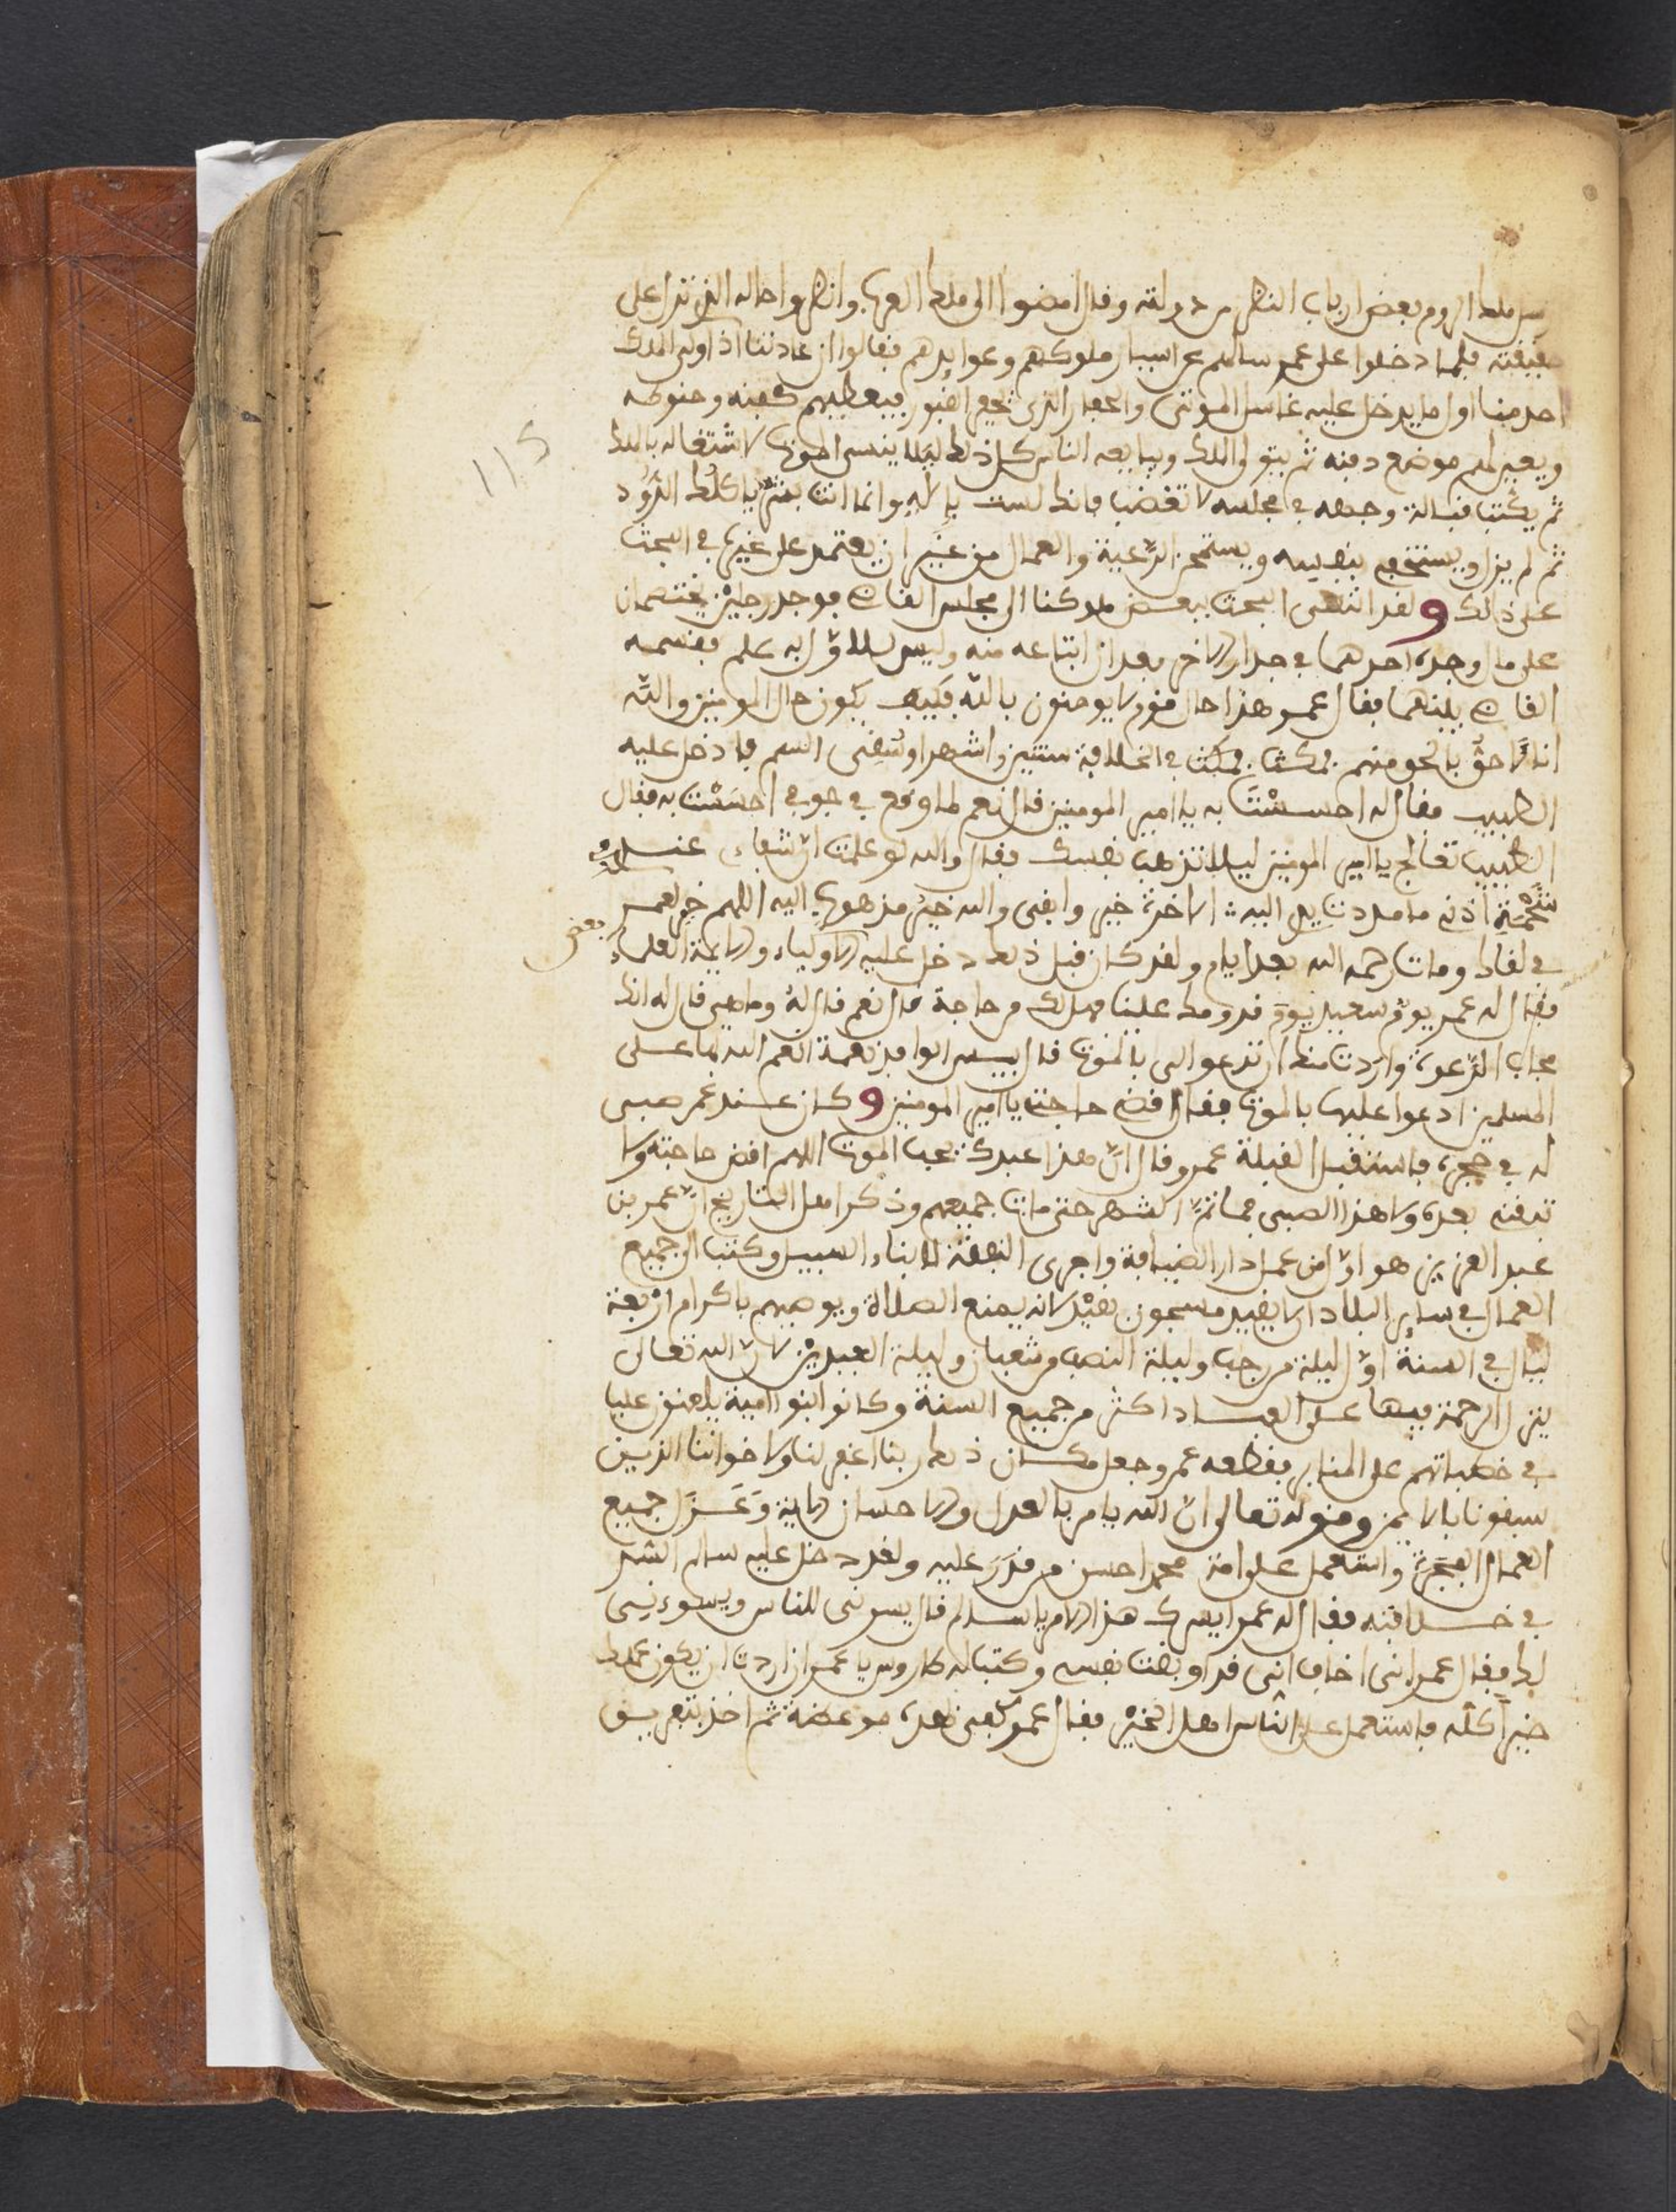 ملك الروم بعض ارباب النظر من دولته وقال امضوا الى ملك العرب وانظروا حاله الذي ترا على
حقيقته فلما دخلوا على عمر سالهم عن اسباب ملوكهم وعوايدهم فقالوا ان عادتنا اذا ولى الملك
احد منا اول ما يدخل عليه غاسل الموتى والحفار الذي يحفر القبور فيعطيهم كفنه وحنوطه
ويعين لهم موضع دفنه ثم يتولى الملك ويبايعه الناس كل ذلك ليلا ينسى الموت لاشتغاله بالملك
ثم يكتب قبالة وجهه في مجلسه لا تغضب فانك لست بإله وانما انت بشر ياكلك الدود
ثم لم يزل يستخبر بنفسه ويستخبر الرعية والعمال من غير ان يعتمد على غيره في البحث
على ذلك ولقد انتهى البحث ببعض ملوكنا الى مجلس القاضي فوجد رجلين يختصمان
على مال وجده احدهما في جدار الاخر بعد ان ابتاعه منه وليس للاول به علم فقسمه
القاضي بينهما فقال عمر هذا حال قوم لا يومنون بالله فكيف يكون حال المومنين والله
انا لاحق بالحق منهم فمكث في الخلافة سنتين واشهرا وسقى السم فلما دخل عليه
الطبيب فقال له احسست به يا امير المومنين قال نعم لما وقع في جوفي احسست به فقال
الطبيب تعالج يا امير المومنين ليلا تذهب نفسك فقال والله لو علمت ان شفاءي عند
شحمة اذني ما مددت يدي اليه الاخرة خير وابقى والله خير مذهوب اليه اللهم خر لعمر
في لقاك ومات رحمه الله بعد ايام ولقد كان قبل ذلك دخل عليه الاولياء والايمة العلماء بعض
فقال له عمر يوم سعيد يوم قدومك علينا فهل لك من حاجة قال نعم قال له وما هي قال له انك
مجاب الدعوة واردت منك ان تدعو الى بالموت قال بيس الوافد نعمة انعم الله بها على
المسلمين ادعوا عليها بالموت فقال اقض حاجتي يا امير المومنين وكان عند عمر صبي
له في حجره فاستقبل القبلة عمر وقال ان هذا عبدك يحب الموت اللهم اقض حاجته ولا
تبقني بعده ولا هذا الصبي فما تم الشهر حتى مات جميعهم وذكر اهل التاريخ ان عمر بن
عبد العزيز هو اول من عمل دار الضيافة واجرى النفقة لابناء السبيل وكتب الى جميع
العمال في ساير البلاد ان لا يقيد مسجون بقيد لانه يمنع الصلاة ويوصيهم باكرام اربعة
ليال في السنة اول ليلة من رجب وليلة النصف من شعبان وليلة العيدين لان الله تعالى
ينزل الرحمة فيها على العباد اكثر من جميع السنة وكانوا ابنوا امية يلعنون عليا
في خطباتهم على المنابر فقطعه عمر وجعل مكان ذلك ربنا اغفر لنا ولاخواننا الذين
سبقونا بالايمن وقوله تعالى ان الله يامر بالعدل والاحسان الاية وعزل جميع
العمال الفجرة واستعمل على امة محمد احسن من قدر عليه ولقد دخل عليه سالم
في خلافته فقال له عمر ايسرك هذا الامر يا سالم قال يسرني للناس ويسوءني
لك فقال عمر اني اخاف اني قد اوبقت نفسي وكتب له طاروس يا عمر ان اردت ان يكون عملك
خيرا كله فاستعمل على الناس اهل الخير فقال عمر كفى بهذه موعظة ثم اخذ بتفريق
115